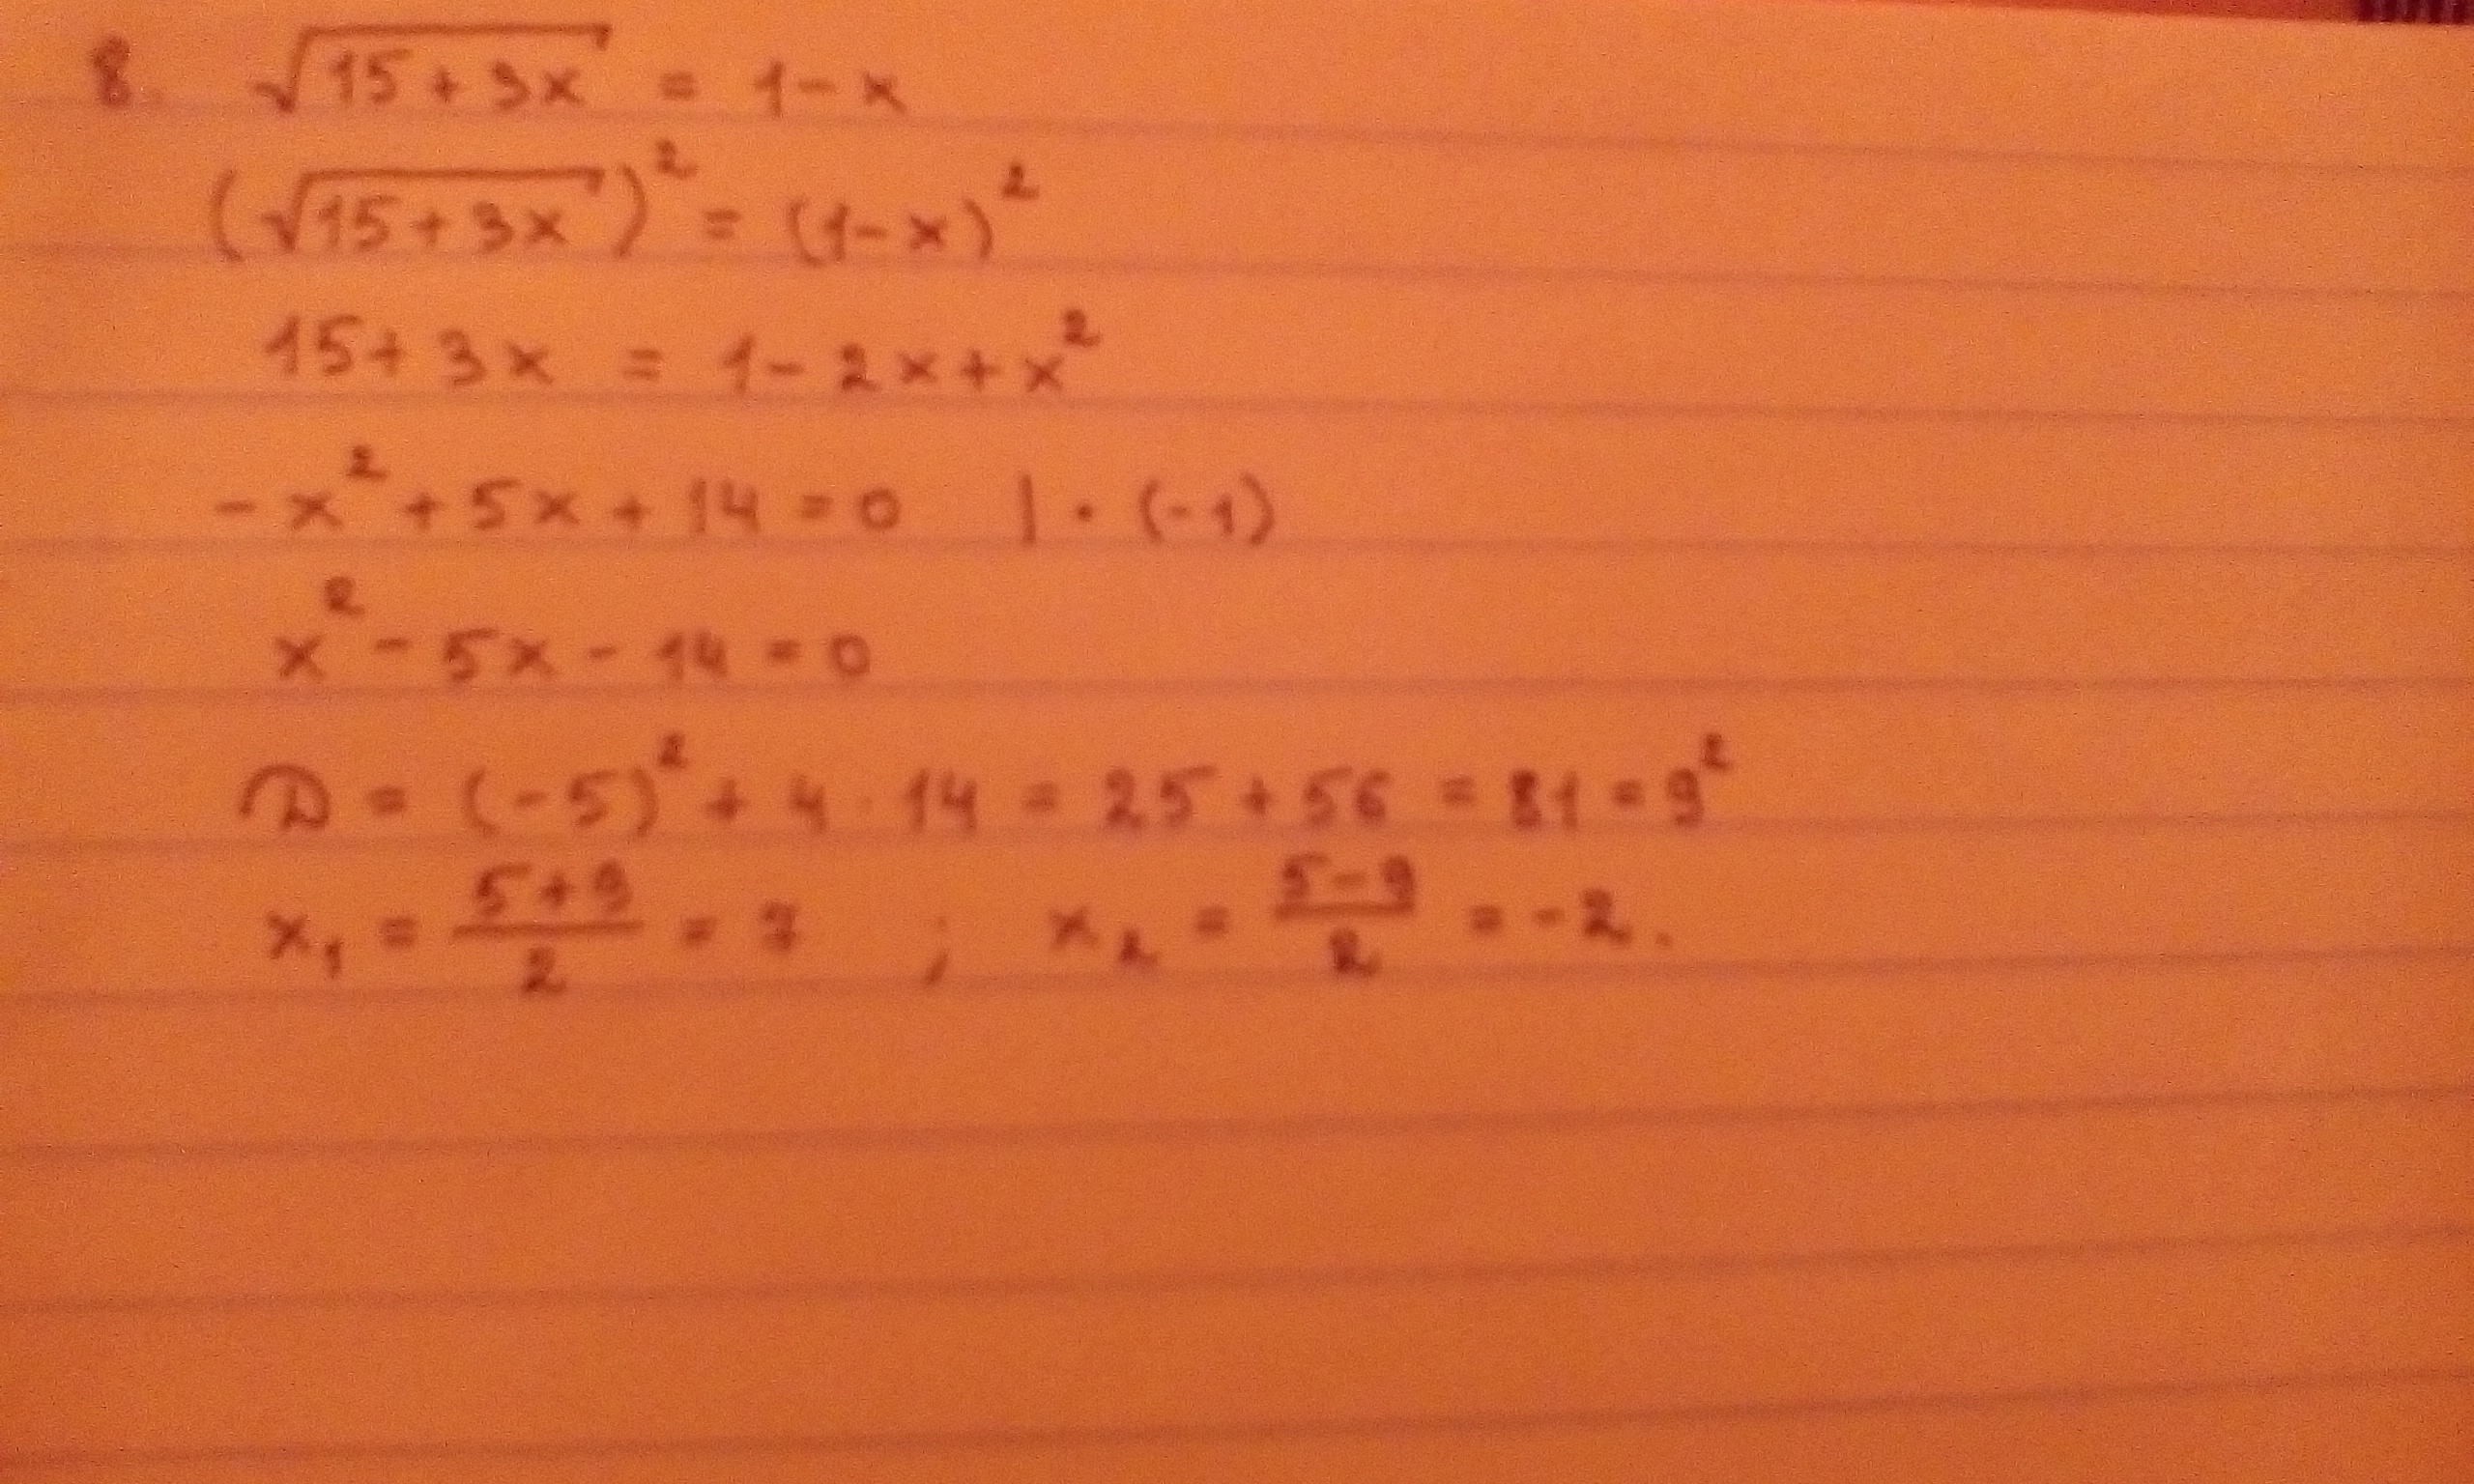 8. √(15+3x) = 1-x
(√(15+3x))² = (1-x)²
15+3x = 1-2x+x²
-x²+5x+14=0 | · (-1)
x²-5x-14=0
D = (-5)²+4·14 = 25+56 = 81 = 9²
x₁ = (5+9)/2 = 7 ; x₂ = (5-9)/2 = -2.